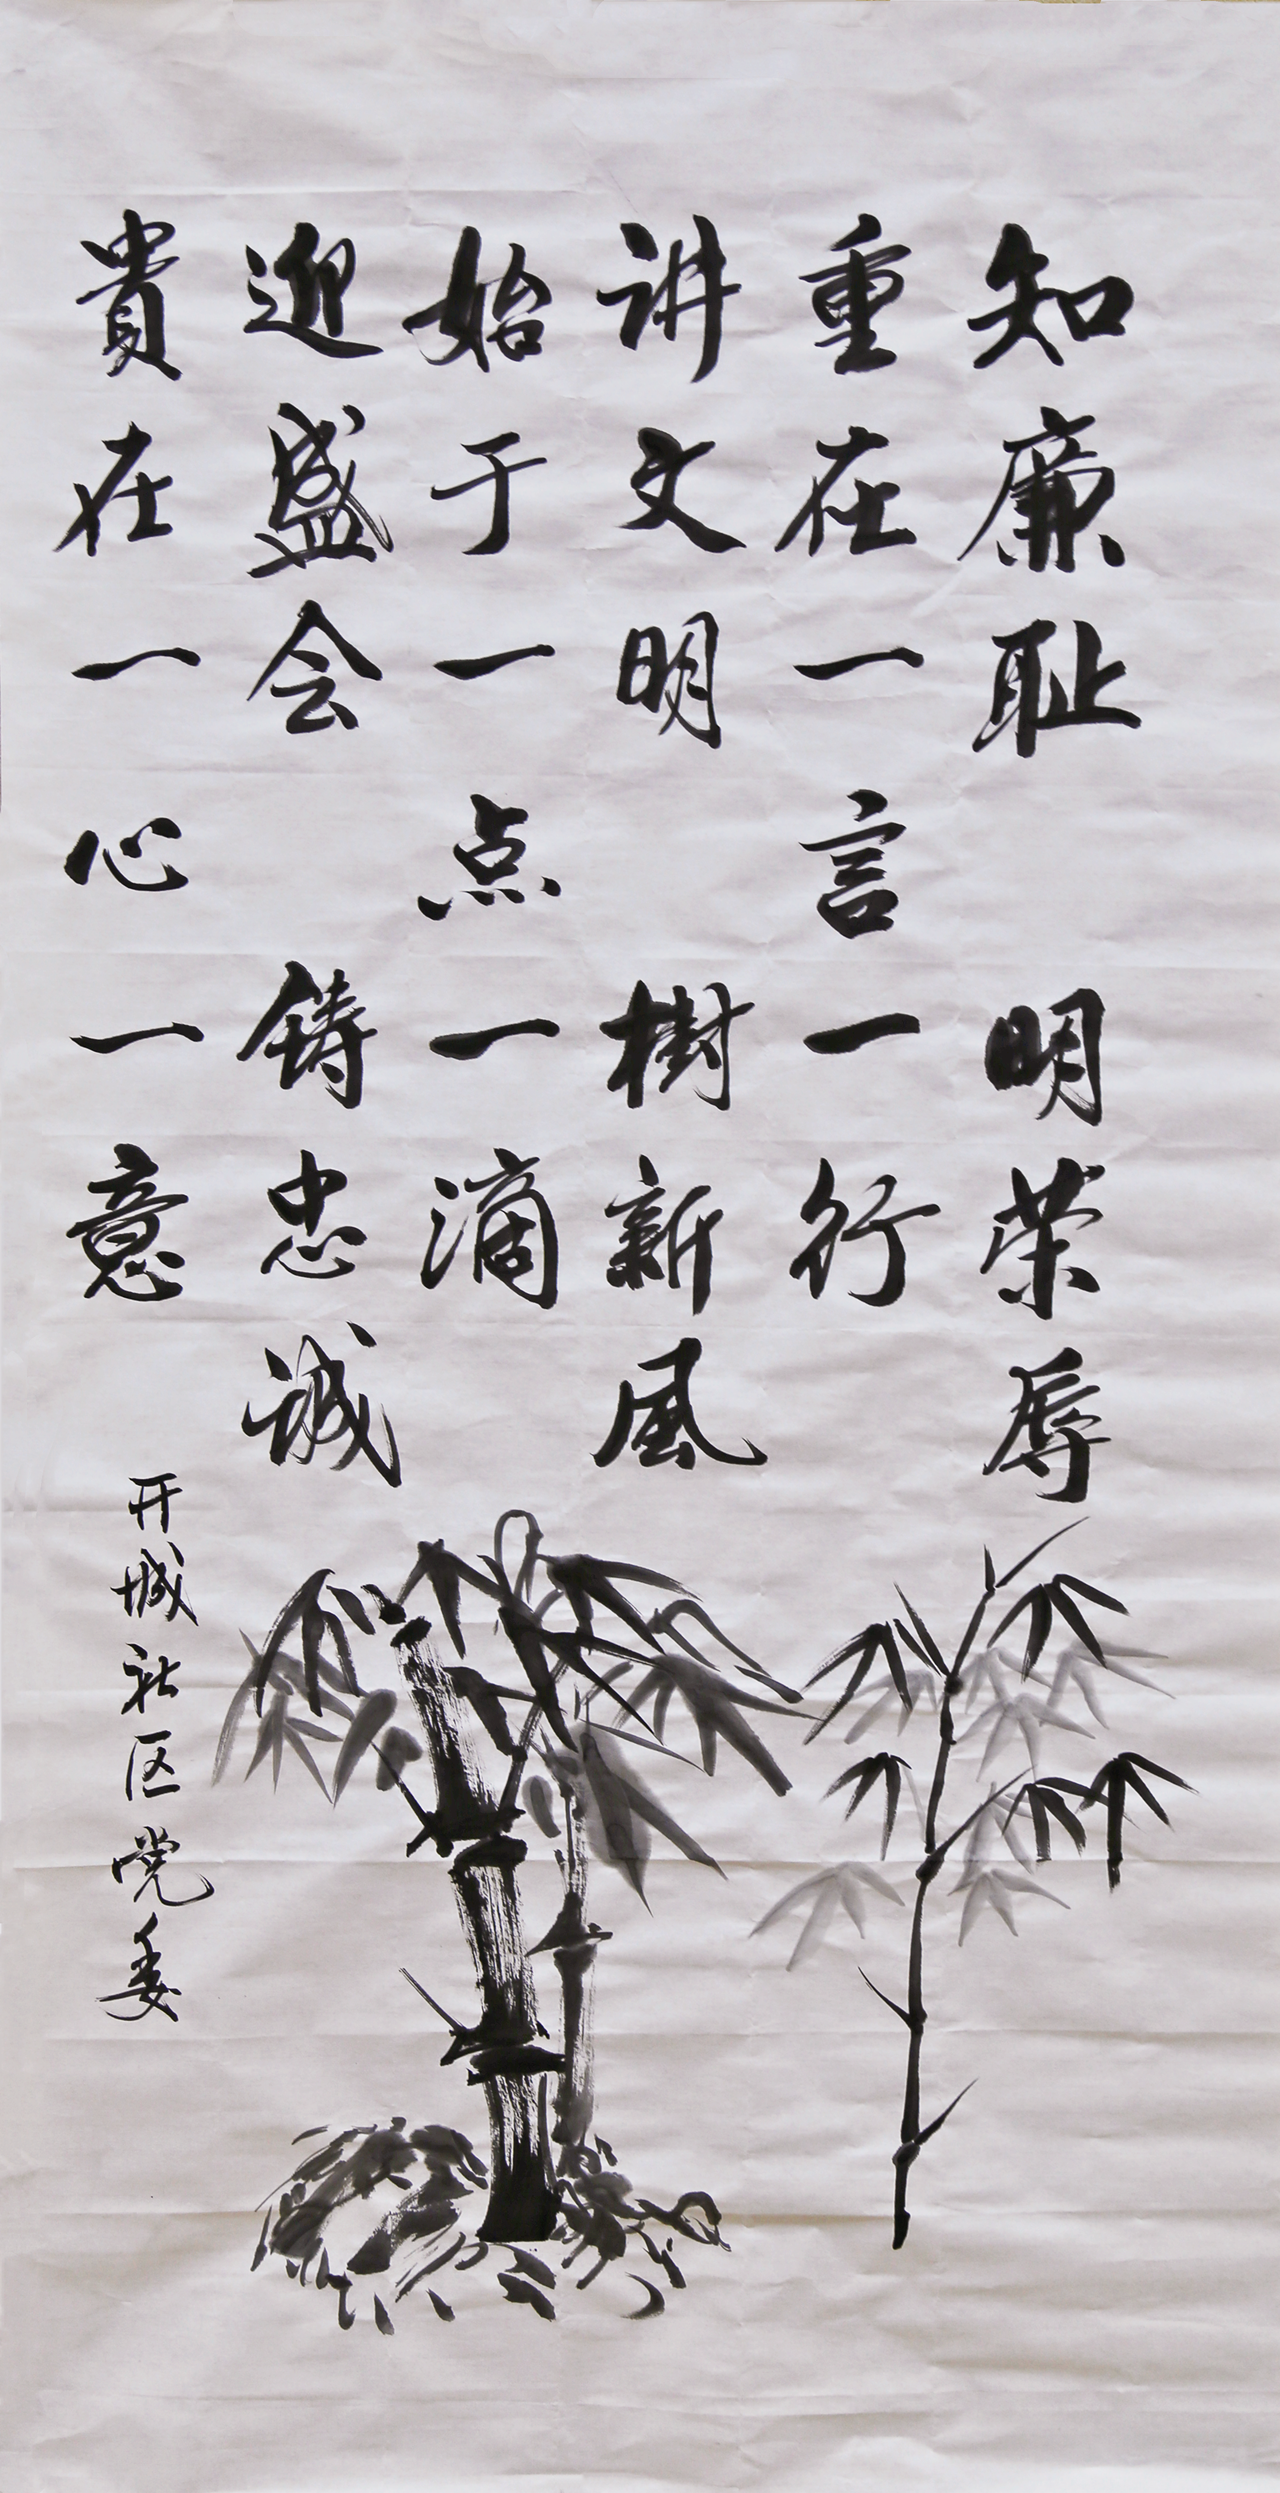 知廉耻 明荣辱
重在一言一行
讲文明 樹新風
始于一点一滴
迎盛会 铸忠诚
貴在一心一意
开城社区党委